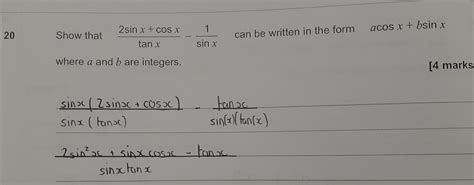 20 Show that (2sin x + cos x)/(tan x) − 1/(sin x) can be written in the form acos x + bsin x
where a and b are integers.
[4 marks
sinx(2sinx + cosx)/(sinx (tanx)) − tanx/(sin(x)(tan(x))
(2sin²x + sinx cosx − tanx)/(sinx tanx)